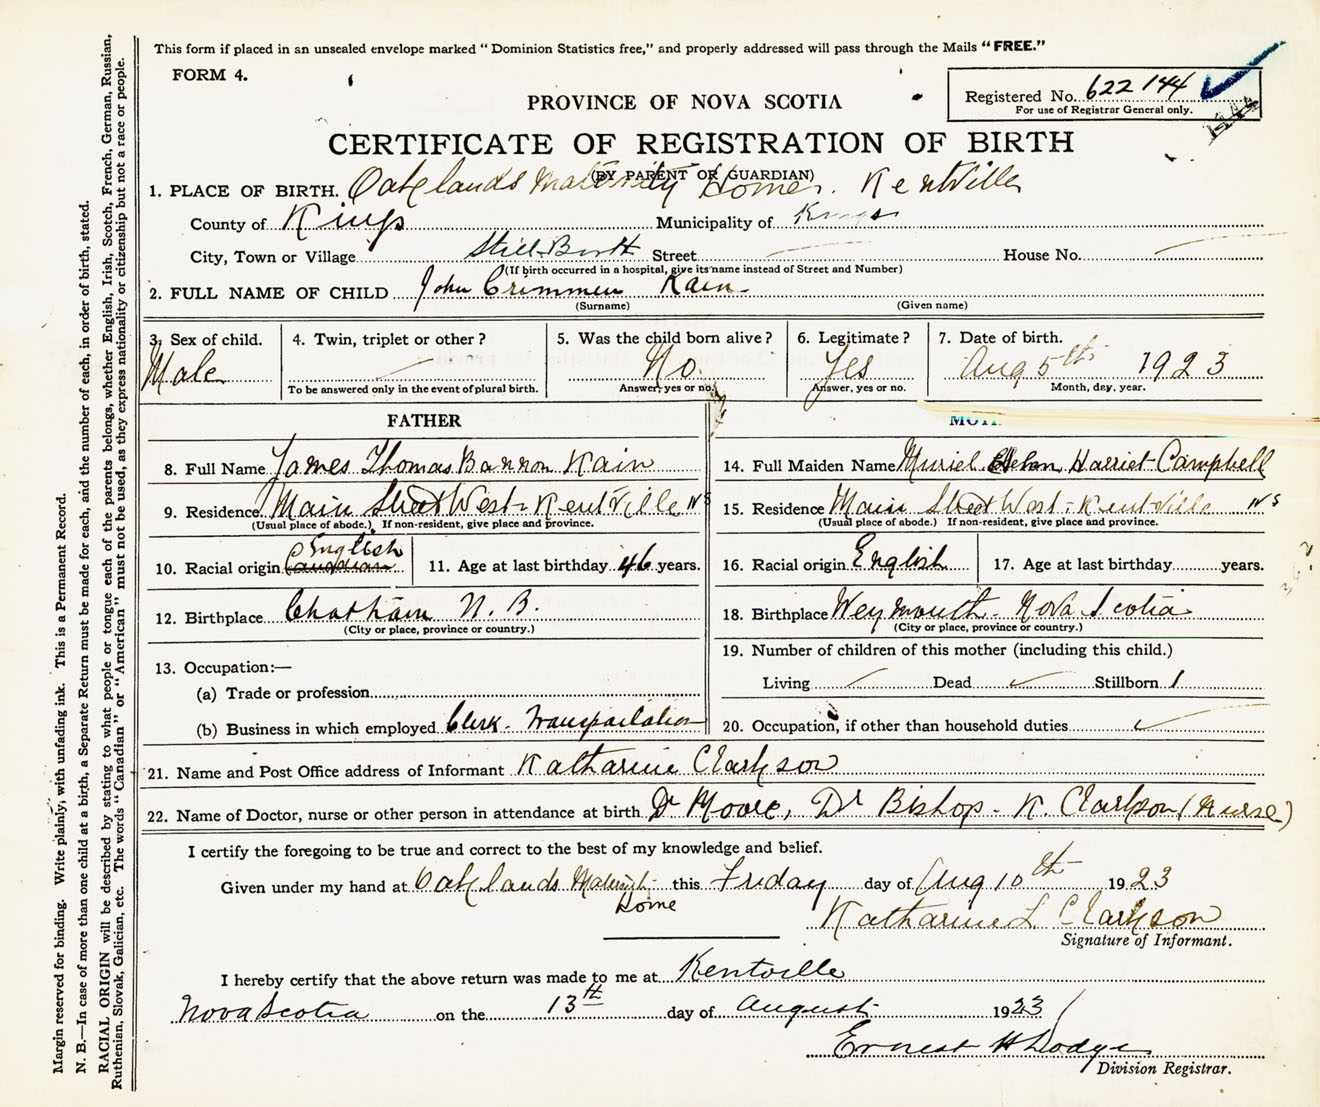 This form if placed in an unsealed envelope marked "Dominion Statistics free," and properly addressed will pass through the Mails "FREE."
FORM 4.
Registered No. 622144
For use of Registrar General only.
PROVINCE OF NOVA SCOTIA
CERTIFICATE OF REGISTRATION OF BIRTH
(BY PARENT OR GUARDIAN)
1. PLACE OF BIRTH. Oaklands Maternity Home. Kentville
County of Kings Municipality of Kings
City, Town or Village Still Birth Street House No.
(If birth occurred in a hospital, give its name instead of Street and Number)
2. FULL NAME OF CHILD John Crimmen Kain
(Surname) (Given name)
3. Sex of child. Male
4. Twin, triplet or other?
To be answered only in the event of plural birth.
5. Was the child born alive? No.
Answer, yes or no.
6. Legitimate? Yes
Answer, yes or no.
7. Date of birth. Aug 5th 1923
Month, day, year.
FATHER
8. Full Name James Thomas Bannon Kain
9. Residence Main Street West - Kentville NS
(Usual place of abode.) If non-resident, give place and province.
10. Racial origin Canadian English
11. Age at last birthday 46 years.
12. Birthplace Chatham N. B.
(City or place, province or country.)
13. Occupation:—
(a) Trade or profession
(b) Business in which employed Clerk - Transportation
14. Full Maiden Name Muriel Helen Harriet Campbell
15. Residence Main Street West - Kentville NS
(Usual place of abode.) If non-resident, give place and province.
16. Racial origin English
17. Age at last birthday years.
18. Birthplace Weymouth - Nova Scotia
(City or place, province or country.)
19. Number of children of this mother (including this child.)
Living Dead Stillborn 1
20. Occupation, if other than household duties
21. Name and Post Office address of Informant Katharine Clarkson
22. Name of Doctor, nurse or other person in attendance at birth Dr Moore, Dr Bishop - K. Clarkson (Nurse)
I certify the foregoing to be true and correct to the best of my knowledge and belief.
Given under my hand at Oaklands Maternity Home this Friday day of Aug 10th 1923
Katharine L Clarkson
Signature of Informant.
I hereby certify that the above return was made to me at Kentville
Nova Scotia on the 13th day of August 1923
Ernest H Dodge
Division Registrar.
Margin reserved for binding. Write plainly, with unfading ink. This is a Permanent Record.
N. B.—In case of more than one child at a birth, a Separate Return must be made for each, and the number of each, in order of birth, stated.
RACIAL ORIGIN will be described by stating to what people or tongue each of the parents belongs, whether English, Irish, Scotch, French, German, Russian,
Ruthenian, Slovak, Galician, etc. The words "Canadian" or "American" must not be used, as they express nationality or citizenship but not a race or people.